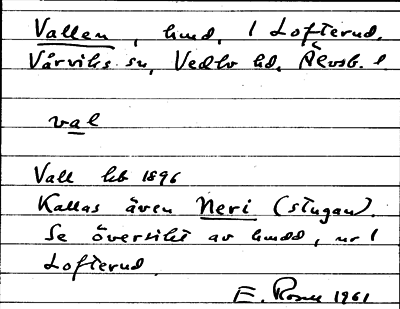 Vallen, hmd, 1 Lofterud.
Vårviks sn, Vedbo hd. Älvsb. l
val
Vall hb 1896
Kallas även Neri (stugan).
Se översikt av hmdd, nr 1
Lofterud.
E. Rosell 1961